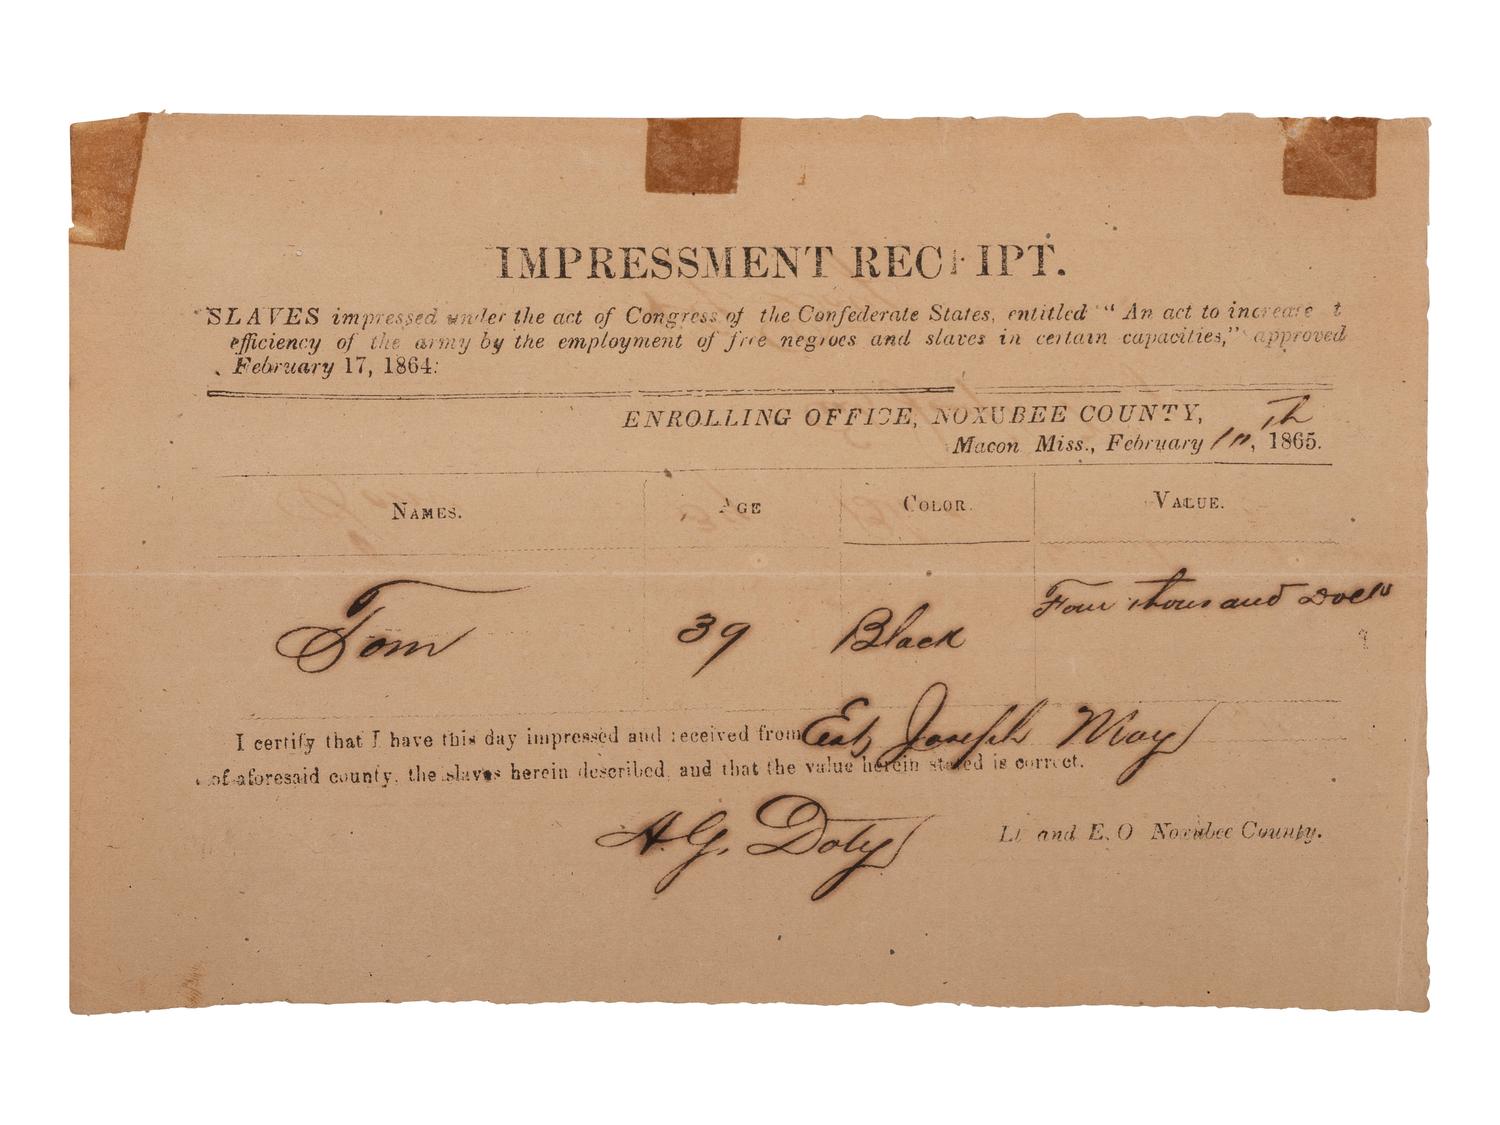 IMPRESSMENT RECEIPT.
SLAVES impressed under the act of Congress of the Confederate States, entitled "An act to increase t
efficiency of the army by the employment of free negroes and slaves in certain capacities," approved
February 17, 1864:
ENROLLING OFFICE, NOXUBEE COUNTY,
Macon Miss., February 10th, 1865.
NAMES. AGE COLOR. VALUE.
Tom 39 Black Four thousand Dolls
I certify that I have this day impressed and received from Est, Joseph May
of aforesaid county, the slaves herein described, and that the value herein stated is correct.
A. G. Doty Lt and E. O Noxubee County.